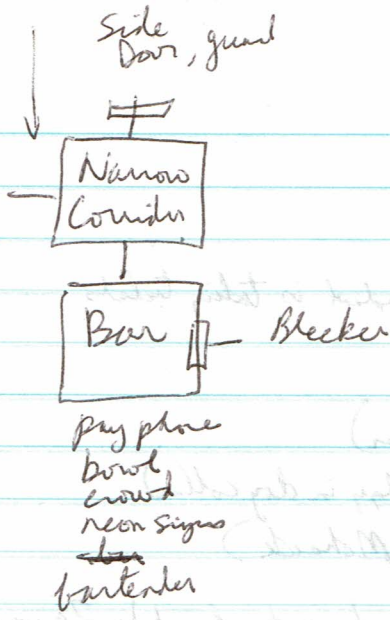 Side
Door, guard
Narrow
Corridor
Bar
Bleecker
pay phone
bowl
crowd
neon signs
bar
bartender